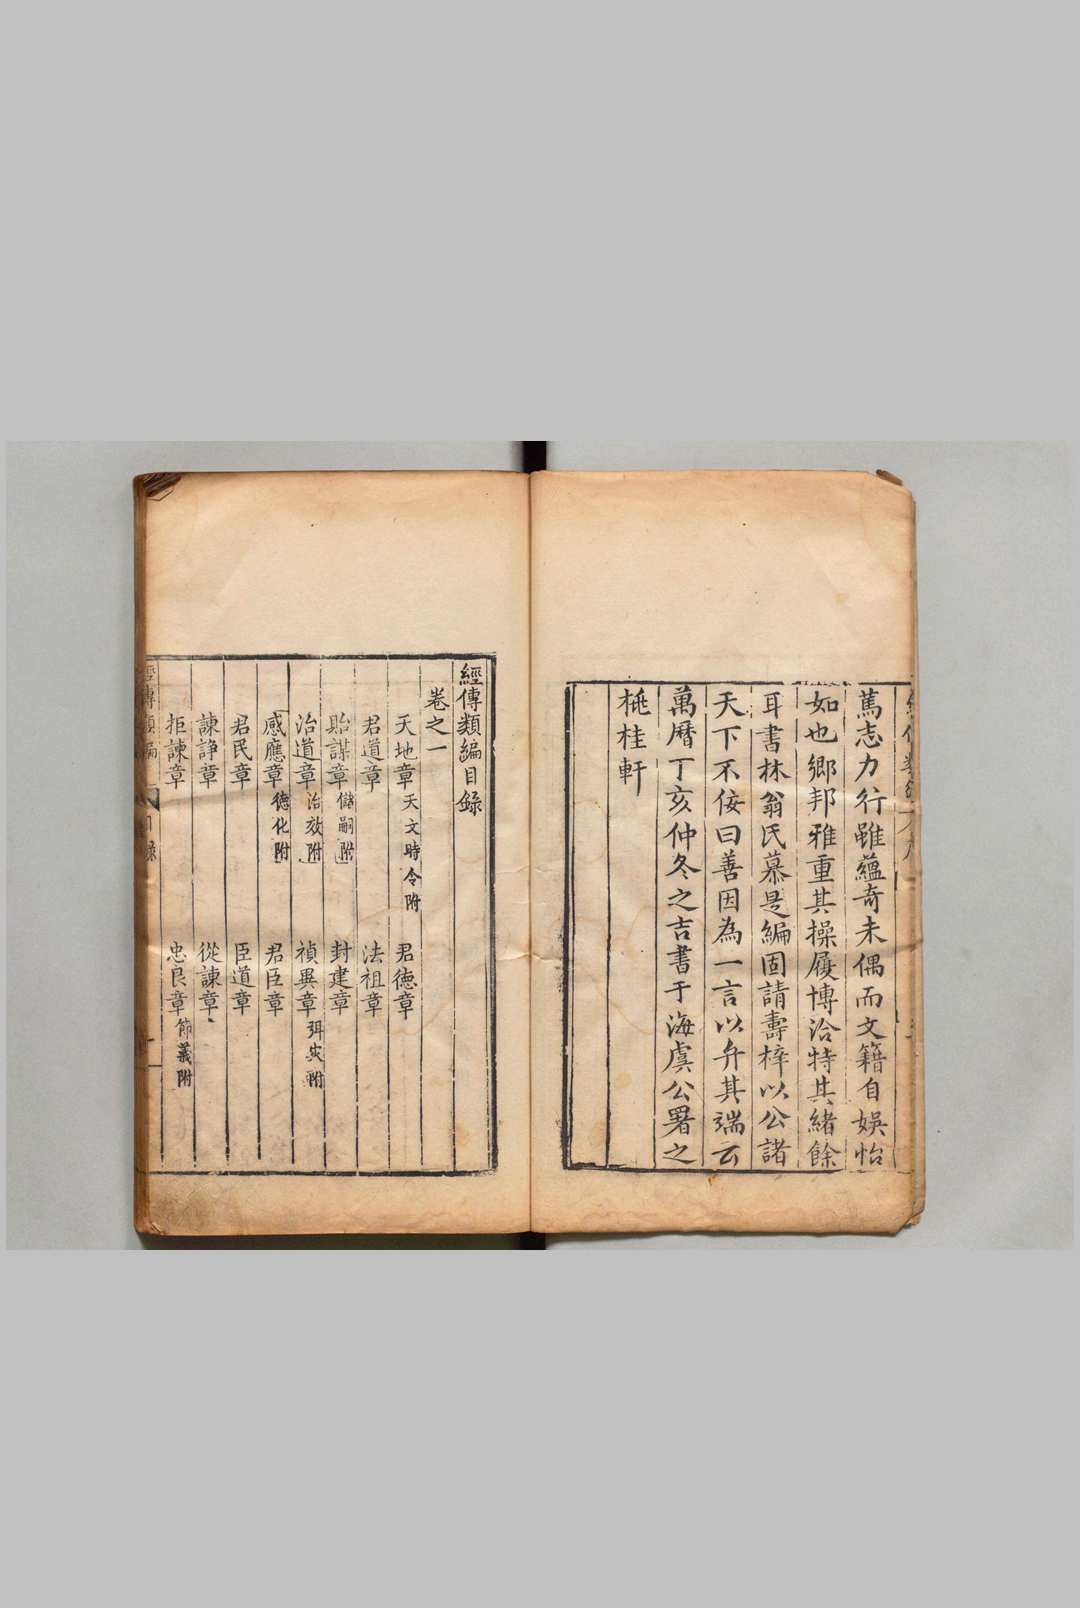 篤志力行雖蘊奇未偶而文籍自娛怡
如也鄉邦雅重其操履博洽特其緒餘
耳書林翁氏慕是編固請壽梓以公諸
天下不佞曰善因為一言以弁其端云
萬曆丁亥仲冬之吉書于海虞公署之
桃桂軒
經傳類編目錄
卷之一
天地章 天文時令附 君德章
君道章 法祖章
貽謀章 儲嗣附 封建章
治道章 治效附 禎異章 弭災附
感應章 德化附 君臣章
君民章 臣道章
諫諍章 從諫章
拒諫章 忠良章 節義附
經傳類編 目錄